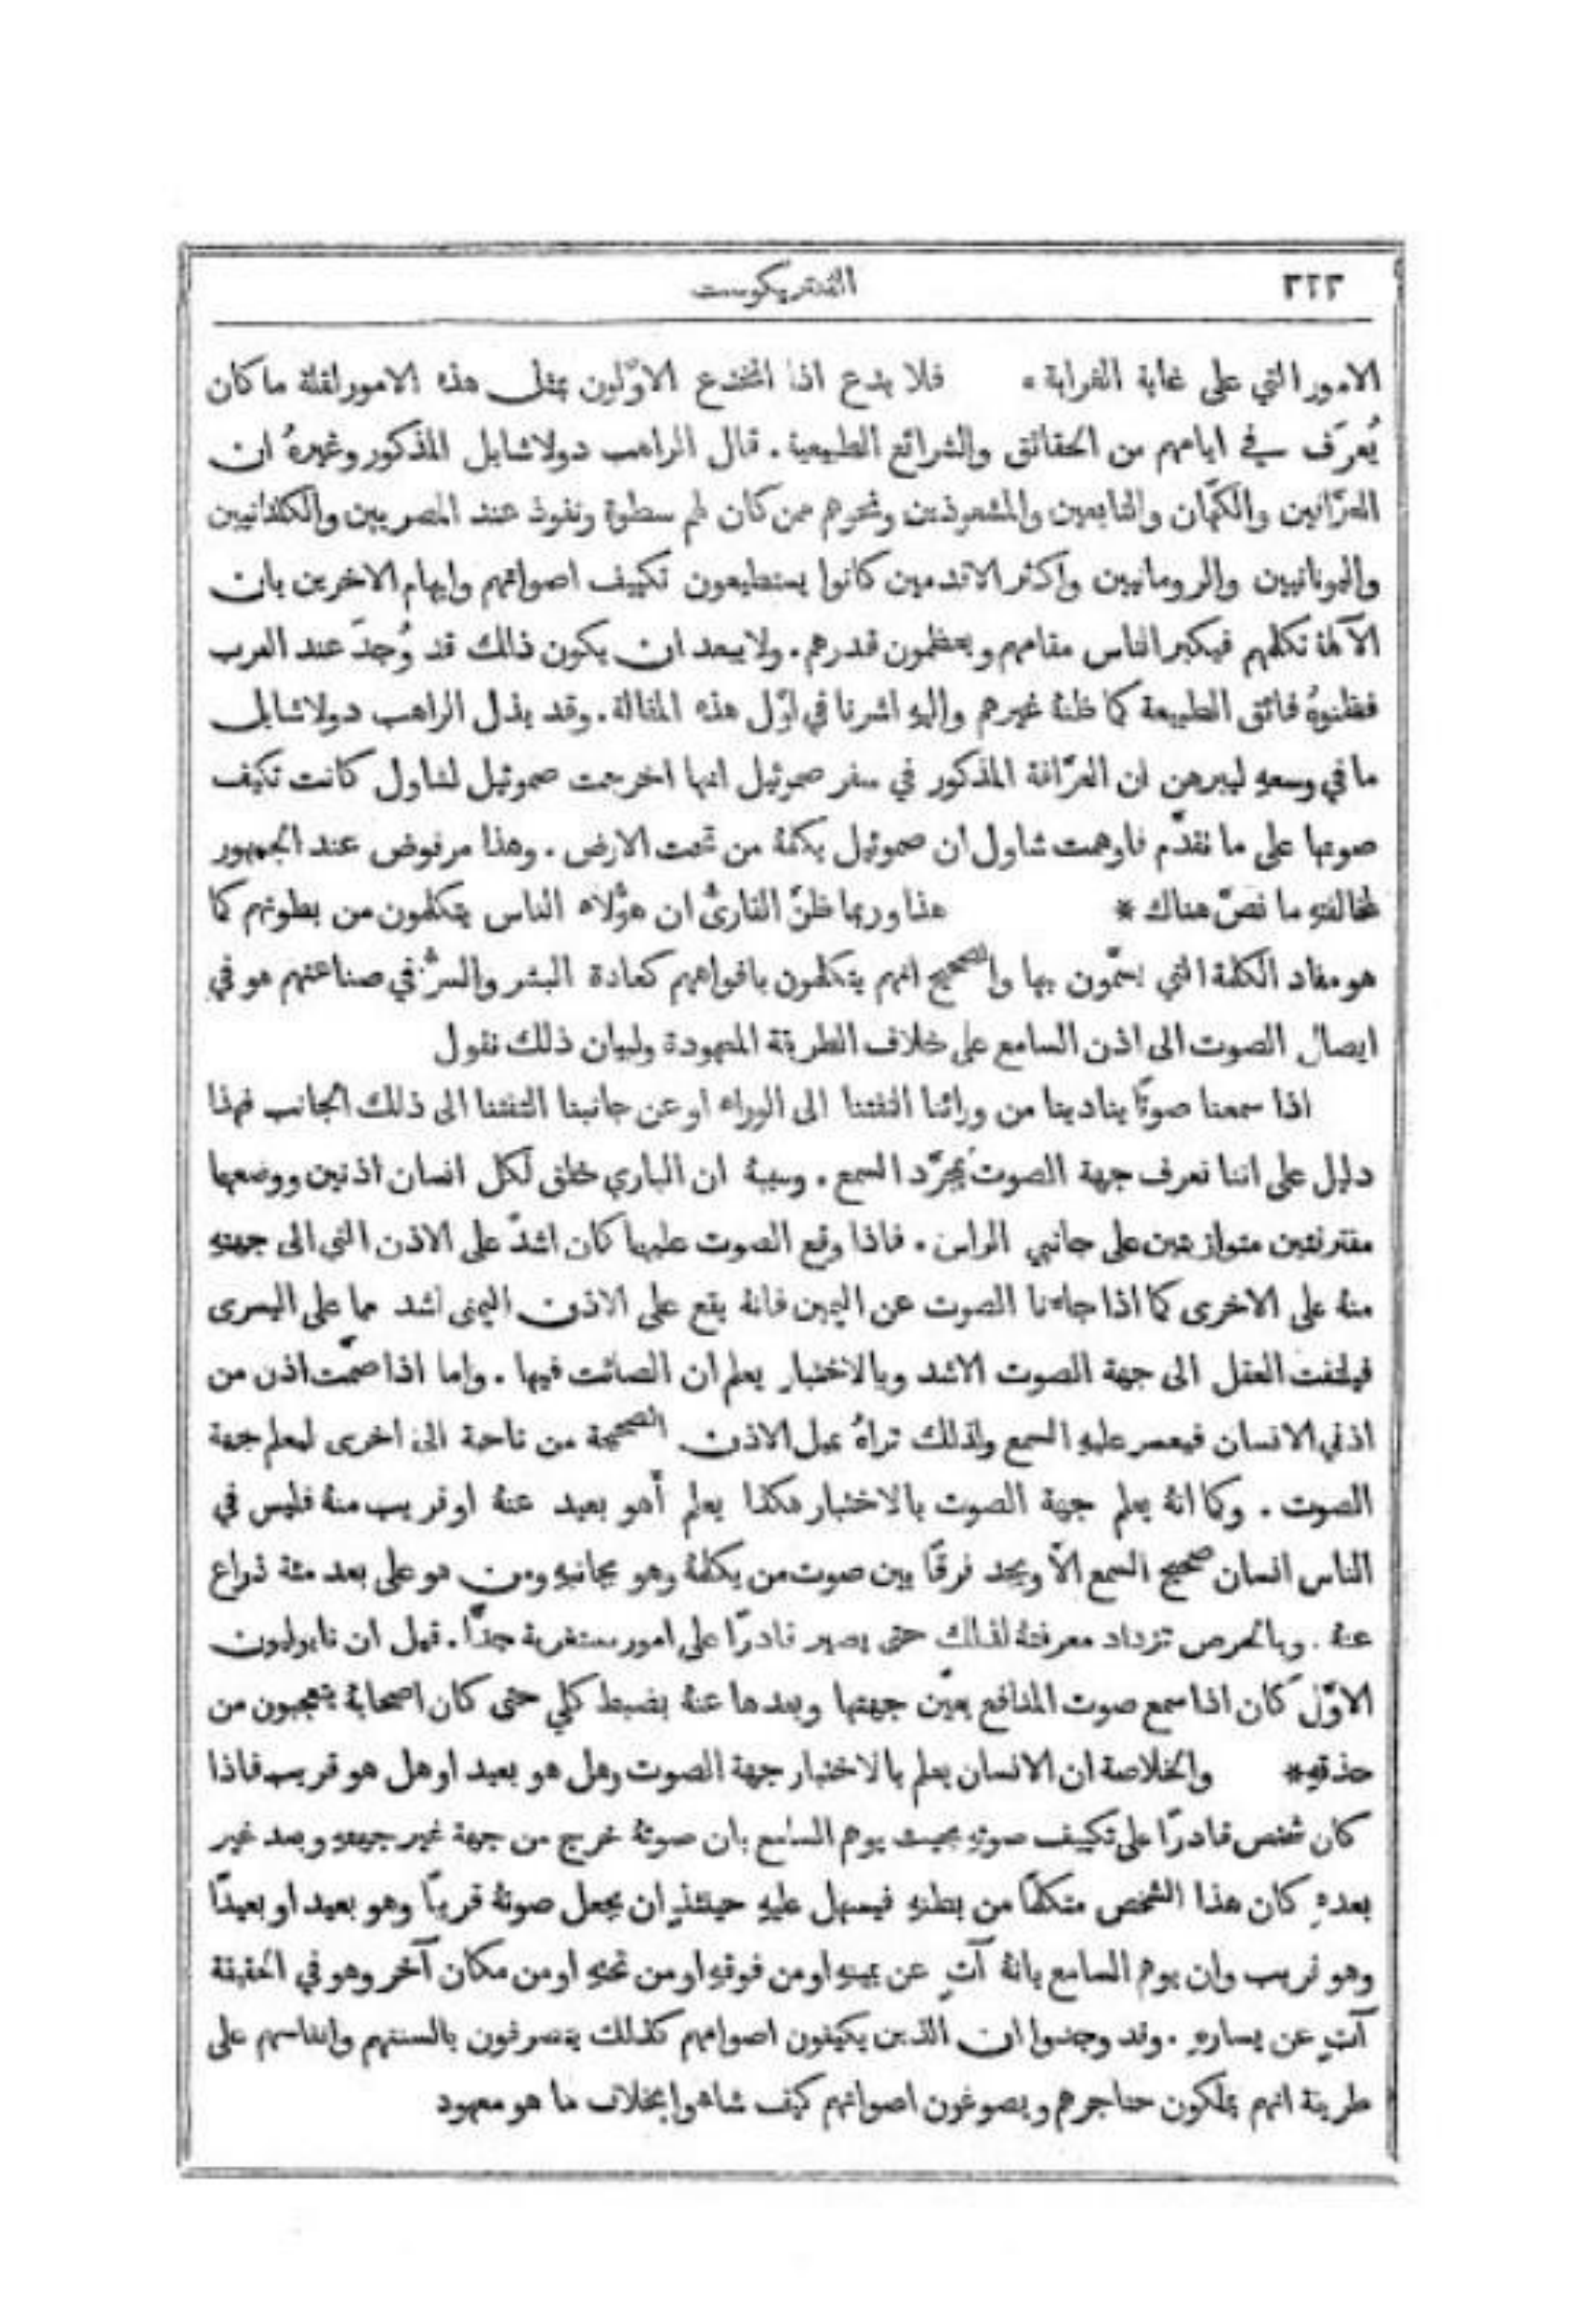 ٢٢٣
الفنتريكوست
الامور التي على غاية الغرابة * فلا بدع اذا انخدع الاوّلون بمثل هذه الامور لقلة ما كان
يُعرَف في ايامهم من الحقائق والشرائع الطبيعية . قال الراهب دولاشابل المذكور وغيرهُ ان
العرّافين والكهّان والتابعين والمشعوذين ونحوهم ممن كان لهم سطوة ونفوذ عند المصريين والكلدانيين
واليونانيين والرومانيين واكثر الاقدمين كانوا يستطيعون تكييف اصواتهم وايهام الاخرين بان
الآلهة تكلمهم فيكبر الناس مقامهم ويعظمون قدرهم . ولا يبعد ان يكون ذالك قد وُجدَ عند العرب
فظنوهُ فائق الطبيعة كما ظنهُ غيرهم واليهِ اشرنا في اوّل هذه المقالة . وقد بذل الراهب دولاشابل
ما في وسعهِ ليبرهن ان العرّافة المذكور في سفر صموئيل انها اخرجت صموئيل لشاول كانت تكيف
صوتها على ما تقدّم فاوهمت شاول ان صموئيل يكلمهُ من تحت الارض . وهذا مرفوض عند الجمهور
لمخالفتهِ ما نصّ هناك * هذا وربما ظنّ القارئُ ان هؤُلاء الناس يتكلمون من بطونهم كما
هو مفاد الكلمة التي يسمّون بها والصحيح انهم يتكلمون بافواههم كعادة البشر والسرُّ في صناعتهم هو في
ايصال الصوت الى اذن السامع على خلاف الطريقة المعهودة ولبيان ذلك نقول
اذا سمعنا صوتًا ينادينا من ورائنا التفتنا الى الوراء او عن جانبنا التفتنا الى ذلك الجانب فهذا
دليل على اننا نعرف جهة الصوت بمجرّد السمع . وسببهُ ان الباري خلق لكل انسان اذنين ووضعهما
مفترقتين متوازيتين على جانبي الراس . فاذا وقع الصوت عليهما كان اشدّ على الاذن التي الى جهتهِ
منهُ على الاخرى كما اذا جاءنا الصوت عن اليمين فانهُ يقع على الاذن اليمنى اشد مما على اليسرى
فيلتفت العقل الى جهة الصوت الاشد وبالاختبار يعلم ان الصائت فيها . واما اذا صمّت اذن من
اذني الانسان فيعسر عليهِ السمع ولذلك تراهُ يميل الاذن الصحيحة من ناحية الى اخرى ليعلم جهة
الصوت . وكما انهُ يعلم جهة الصوت بالاختبار هكذا يعلم أهو بعيد عنهُ او قريب منهُ فليس في
الناس انسان صحيح السمع الاّ ويجد فرقًا بين صوت من يكلمهُ وهو بجانبهِ ومن هو على بعد مئة ذراع
عنهُ . وبالحرص تزداد معرفتهُ لذلك حتى يصير قادرًا على امور مستغربة جدًّا . قيل ان نابوليون
الاوّل كان اذا سمع صوت المدافع يعيّن جهتها وبعدها عنهُ بضبط كلي حتى كان اصحابهُ يتعجبون من
حذقهِ * والخلاصة ان الانسان يعلم بالاختبار جهة الصوت وهل هو بعيد او هل هو قريب فاذا
كان شخص قادرًا على تكييف صوتهِ بحيث يوهم السامع بان صوتهُ خرج من جهة غير جهتهِ وبعد غير
بعدهِ كان هذا الشخص متكلمًا من بطنهِ فيسهل عليهِ حينئذٍ ان يجعل صوتهُ قريبًا وهو بعيد او بعيدًا
وهو قريب وان يوهم السامع بانهُ آتٍ عن يمينهِ او من فوقهِ او من تحتهِ او من مكان آخر وهو في الحقيقة
آتٍ عن يسارهِ . وقد وجدوا ان الذين يكيفون اصواتهم كذلك يتصرفون بالسنتهم وانفاسهم على
طريقة انهم يملكون حناجرهم ويصوغون اصواتهم كيف شاءوا بخلاف ما هو معهود